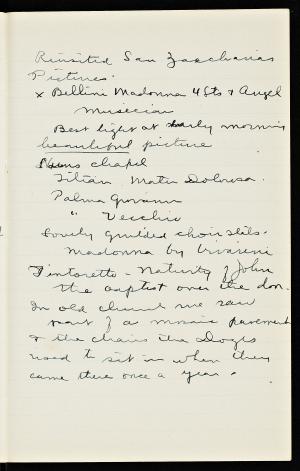 Revisited San Zaccharias
Pictures.
x Bellini Madonna 4 Sts & Angel
musician
Best light at early morning
beautiful picture
Nuns chapel
Titian Mater Dolorosa.
Palma Giovanni
" Vecchio
Lovely guilded choir stils.
Madonna by Vivarini
Tintoretto - Nativity of John
the baptist over the dor.
In old church we saw
part of a mosaic pavement
& the chairs the Doges
used to sit in when they
came there once a year.